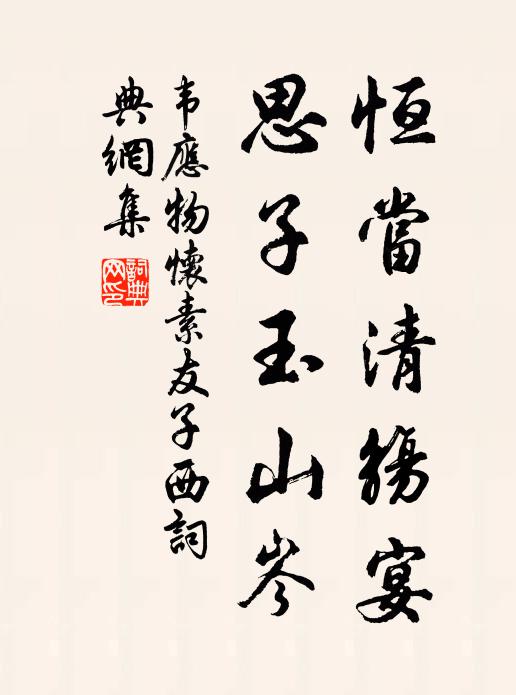 恒當清觴宴
思子玉山岑
韦應物懷素友子西詞
典網集
詞典網印